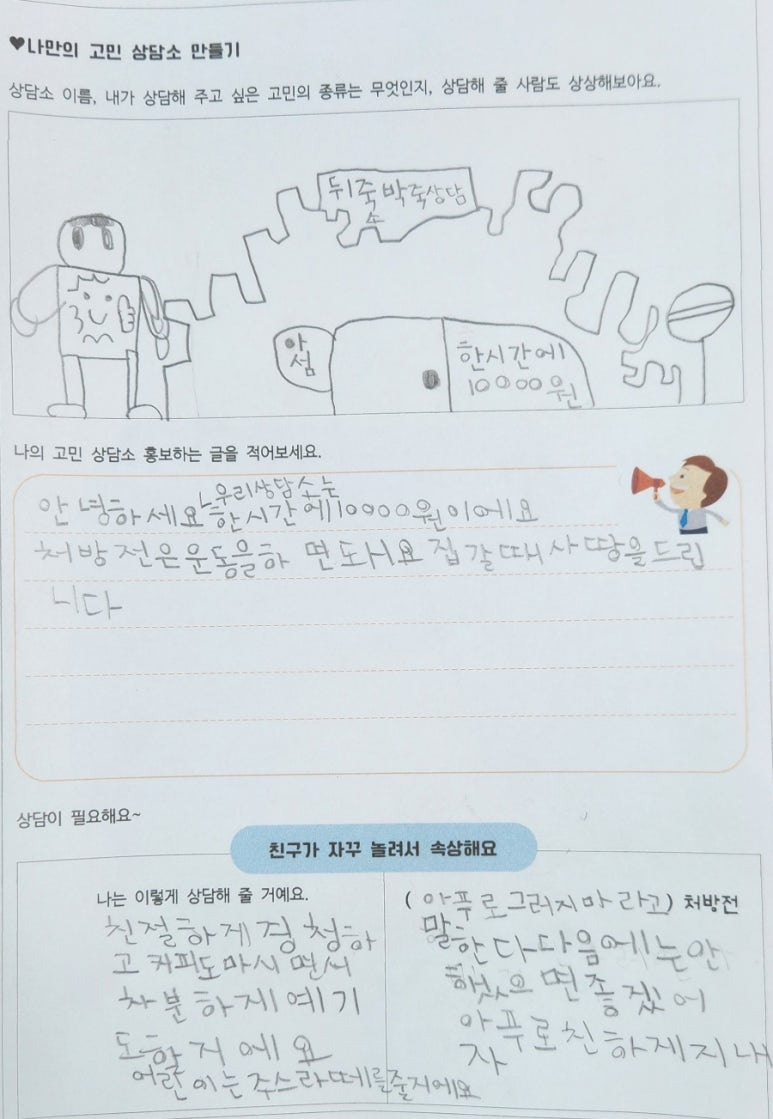 ♥나만의 고민 상담소 만들기
상담소 이름, 내가 상담해 주고 싶은 고민의 종류는 무엇인지, 상담해 줄 사람도 상상해보아요.
뒤죽박죽상담
소
한시간에
10000원
나의 고민 상담소 홍보하는 글을 적어보세요.
우리상담소는
안녕하세요 한시간에10000원이에요
처방전은운동을하 면 도ㅐ요 집갈때 사땅을드립
니다
상담이 필요해요~
친구가 자꾸 놀려서 속상해요
나는 이렇게 상담해 줄 거예요.
친절하게경청하
고 커피도마시면서
차분하게예기
도할거에요
어란이는주스라떼를줄거에요
(아푸로그러지마라고) 처방전
말한다다음에는안
했으면좋겠어
아푸로친하게지내
자